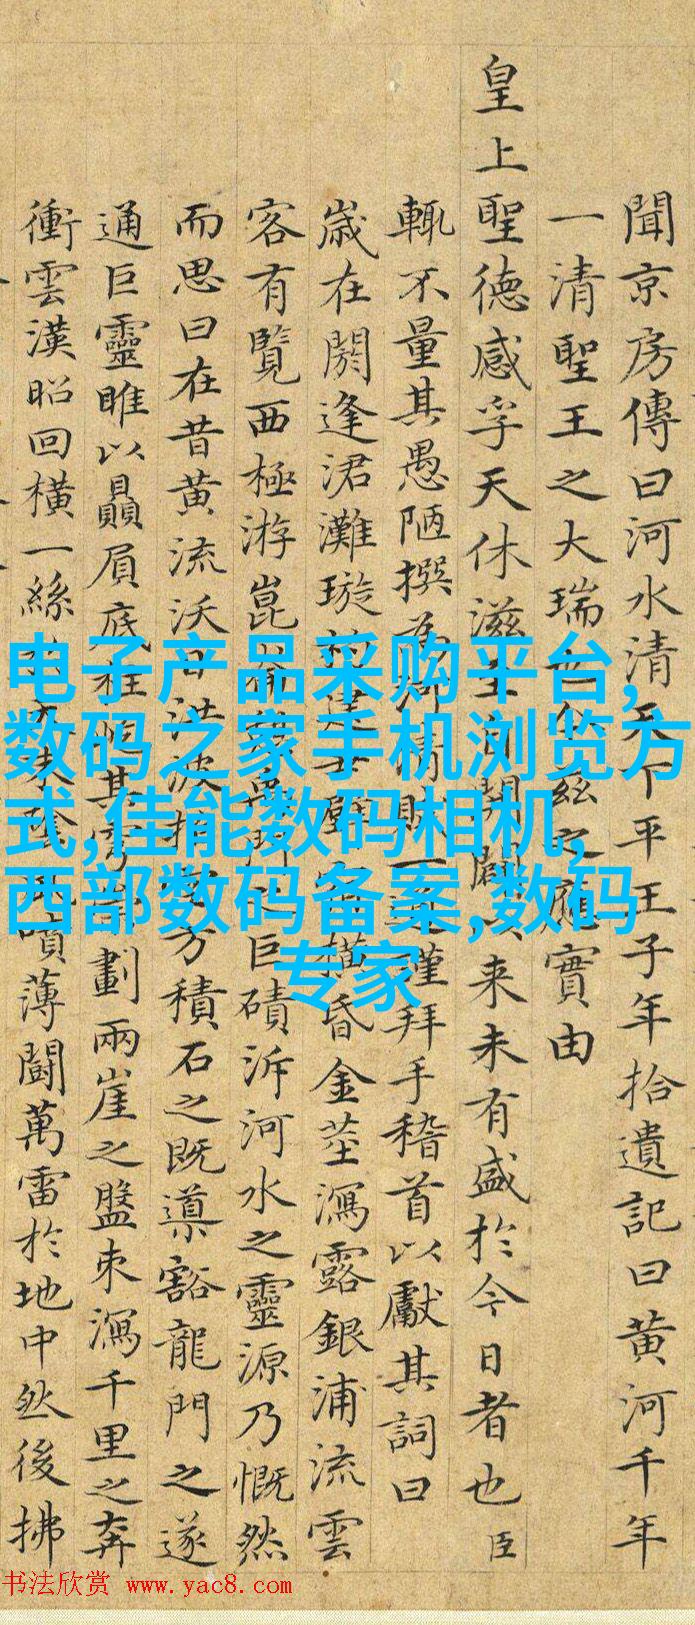 聞京房傳曰河水清天下平王子年拾遺記曰黄河千年
一清聖王之大瑞也茲之應實由
皇上聖德感孚天休滋至自開闢以来未有盛於今日者也臣
輒不量其愚陋撰為
拜手稽首以獻其詞曰
歲在閼逢涒灘璇
描昏金莖瀉露銀浦流雲
客有覽西極游崑
巨磧泝河水之靈源乃慨然
而思曰在昔黄流沃日洪波
方積石之既導豁龍門之遂
通巨靈睢以贔屓底柱
劃兩崖之盤束瀉千里之奔
衝雲漢昭回橫一絲
噴薄鬪萬雷於地中然後拂
电子产品采购平台,
数码之家手机浏览方
式,佳能数码相机,
西部数码备案,数码
专家
书法欣赏 www.yac8.com